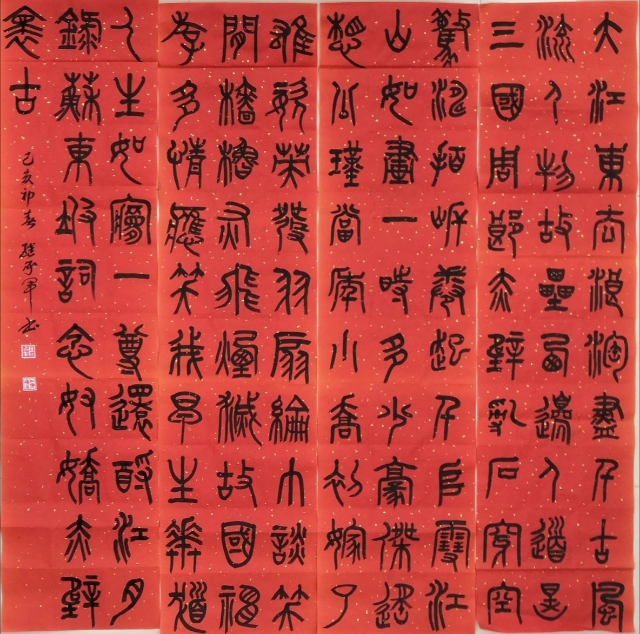 大江東去浪淘盡千古風
流人物故壘西邊人道是
三國周郎赤壁亂石穿空
驚濤拍岸卷起千堆雪江
山如畫一時多少豪傑遙
想公瑾當年小喬初嫁了
雄姿英發羽扇綸巾談笑
間檣櫓灰飛煙滅故國神
遊多情應笑我早生華髮
人生如夢一尊還酹江月
錄蘇東坡詞念奴嬌赤壁
懷古
己亥初春 軍書